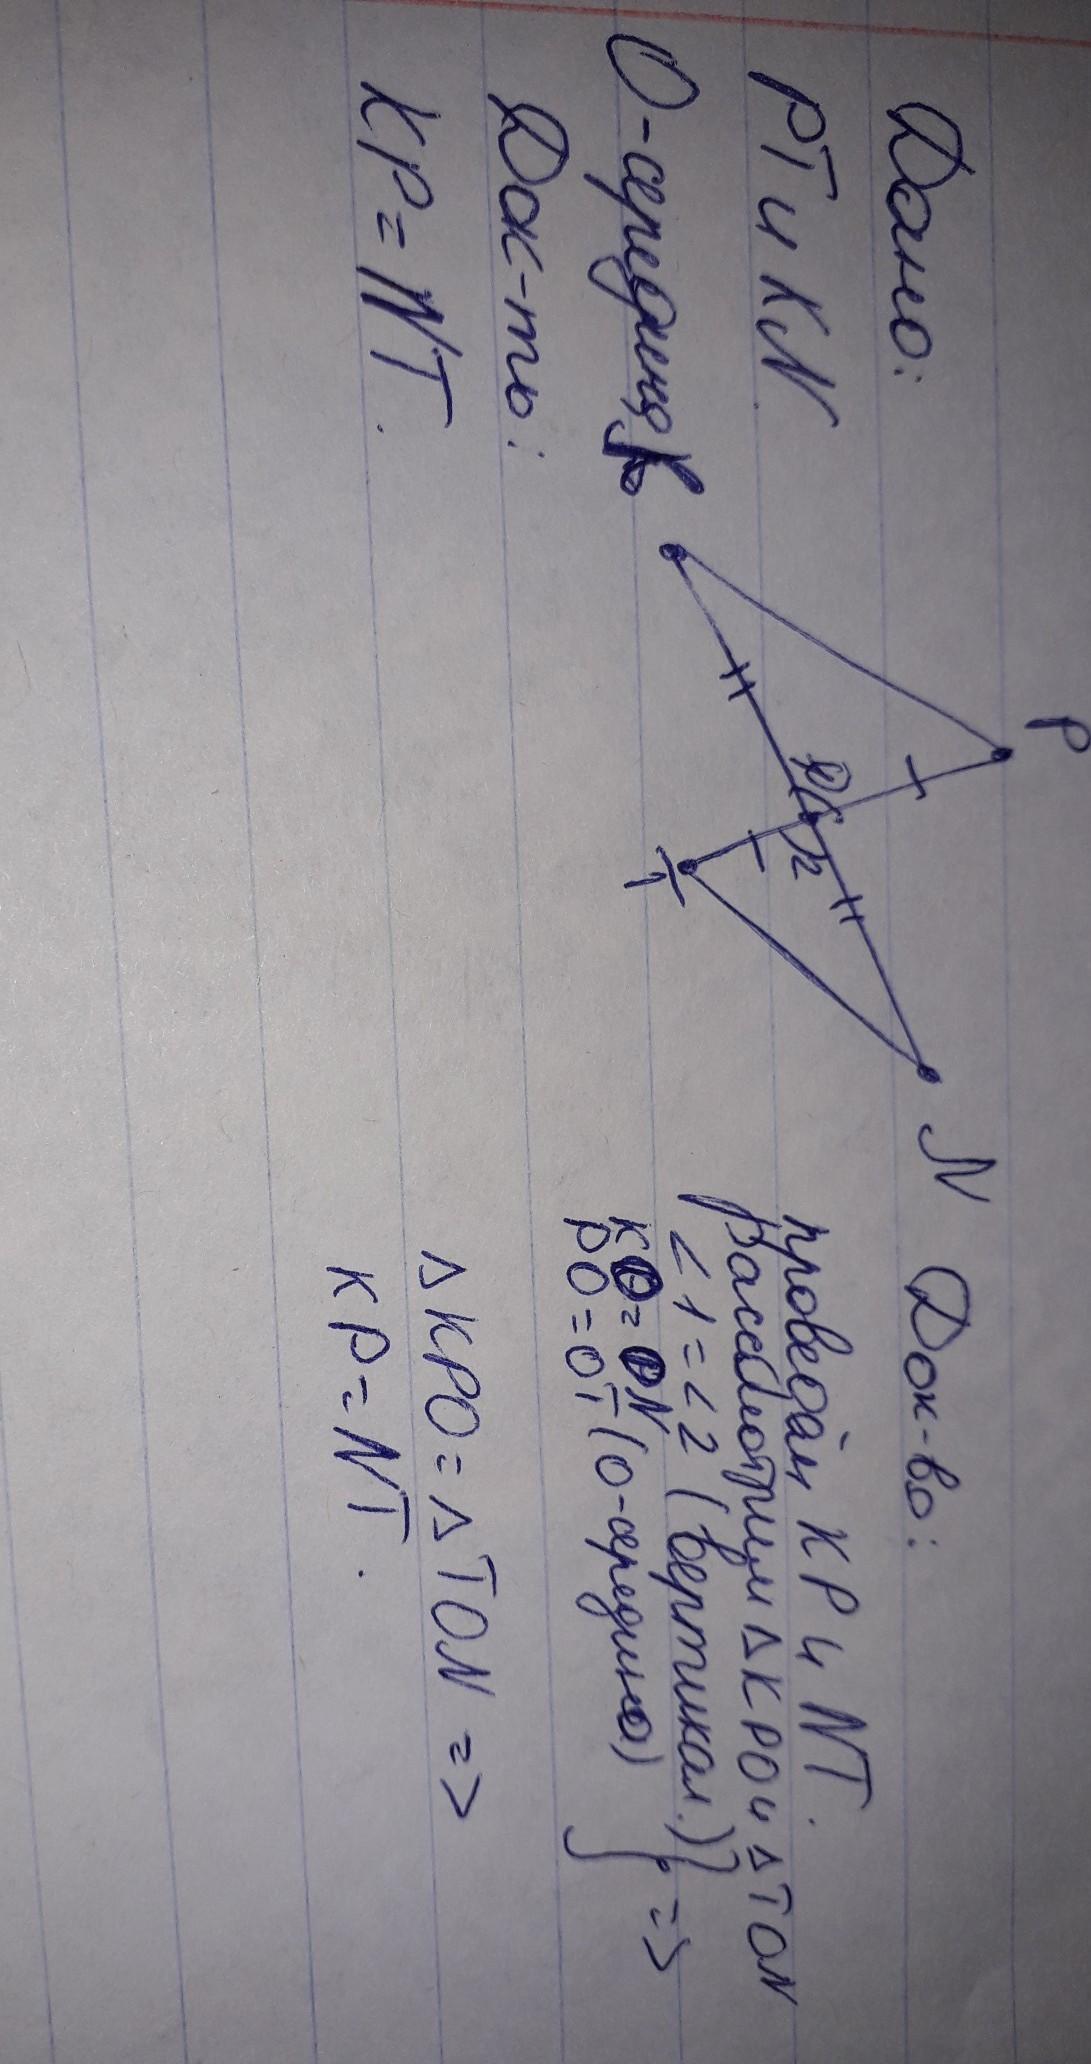 Дано:
РТ и KN.
О-середина
Док-ть:
KP = NT.
P
N
K
T
1
2
Док-во:
проведём KP и NT.
Рассмотрим △KPO и △TON
∠1 = ∠2 (вертикал.)
KO = ON
PO = OT (О-середина) } =>
△KPO = △TON =>
KP = NT.